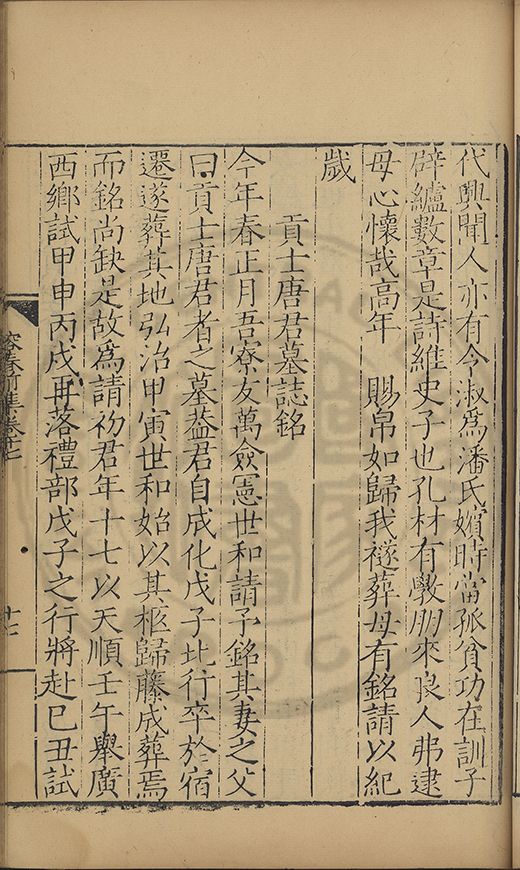 代興聞人亦有令淑爲潘氏嬪時當孤貧功在訓子
辟纑數章是詩維史子也孔材有斅朋來良人弗逮
母心懷哉高年　賜帛如歸我襚葬母有銘請以紀
歲
貢士唐君墓誌銘
今年春正月吾寮友萬僉憲世和請予銘其妻之父
曰貢士唐君者之墓葢君自成化戊子北行卒於宿
遷遂葬其地弘治甲寅世和始以其柩歸藤成葬焉
而銘尚缺是故爲請初君年十七以天順壬午舉廣
西鄉試甲申丙戌再落禮部戊子之行將赴巳丑試
容春 集卷十七
十七